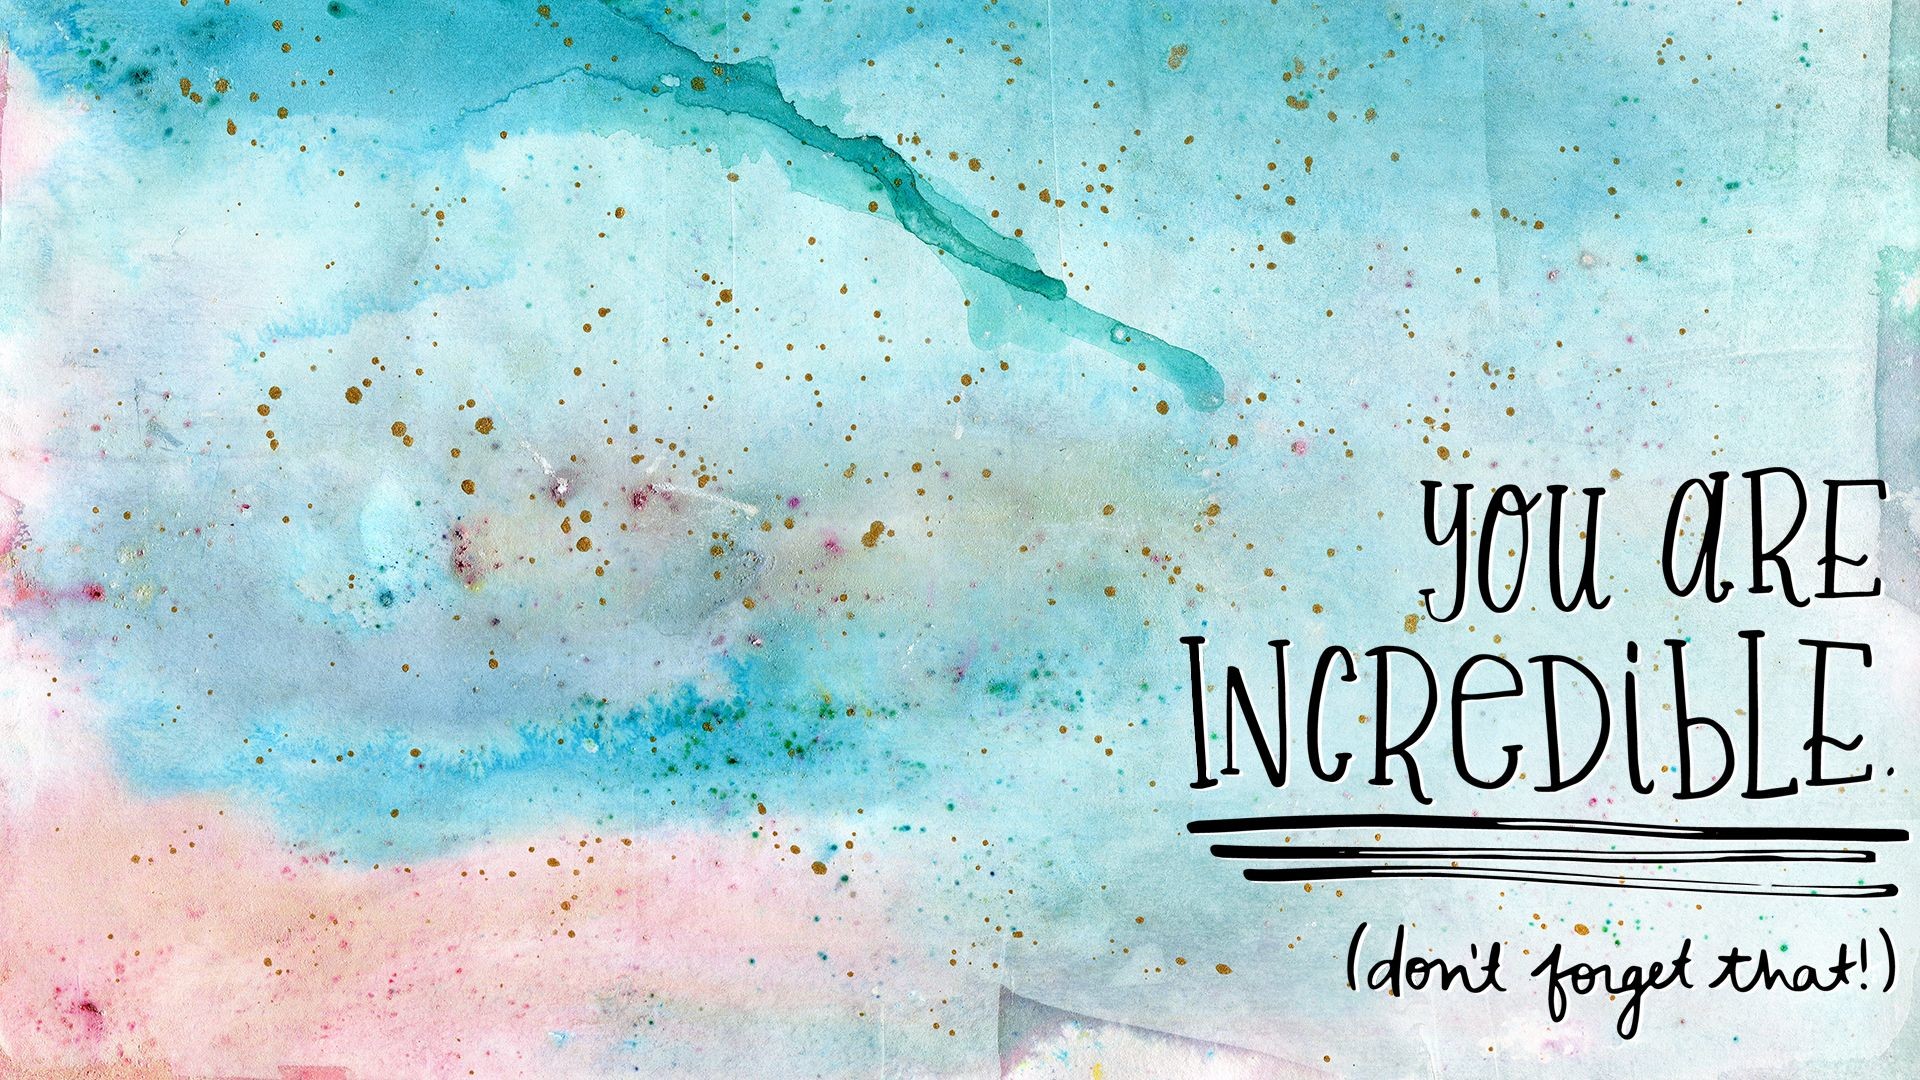 YOU ARE
INCREDIBLE.
(don't forget that!)